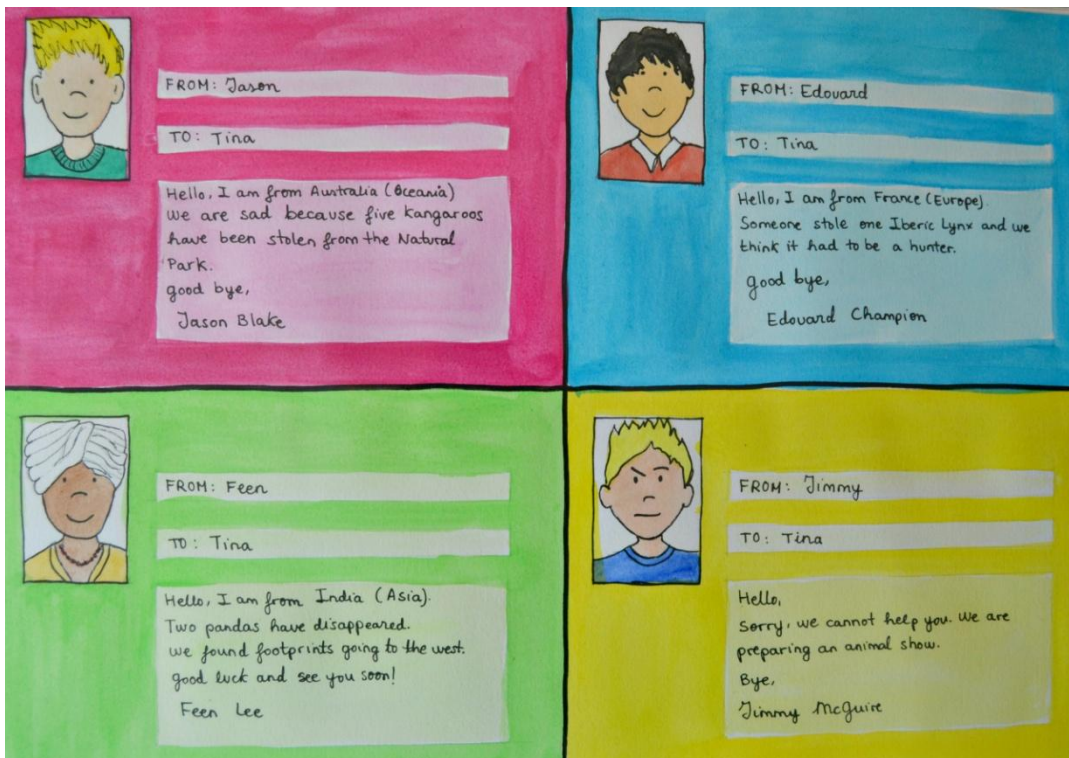 FROM: Jason
TO: Tina
Hello, I am from Australia (Oceania)
We are sad because five kangaroos
have been stolen from the Natural
Park.
good bye,
Jason Blake
FROM: Edouard
TO: Tina
Hello, I am from France (Europe).
Someone stole one Iberic Lynx and we
think it had to be a hunter.
good bye,
Edouard Champion
FROM: Feen
TO: Tina
Hello, I am from India (Asia).
Two pandas have disappeared.
we found footprints going to the west.
good luck and see you soon!
Feen Lee
FROM: Jimmy
TO: Tina
Hello,
Sorry, we cannot help you. We are
preparing an animal show.
Bye,
Jimmy McGuire